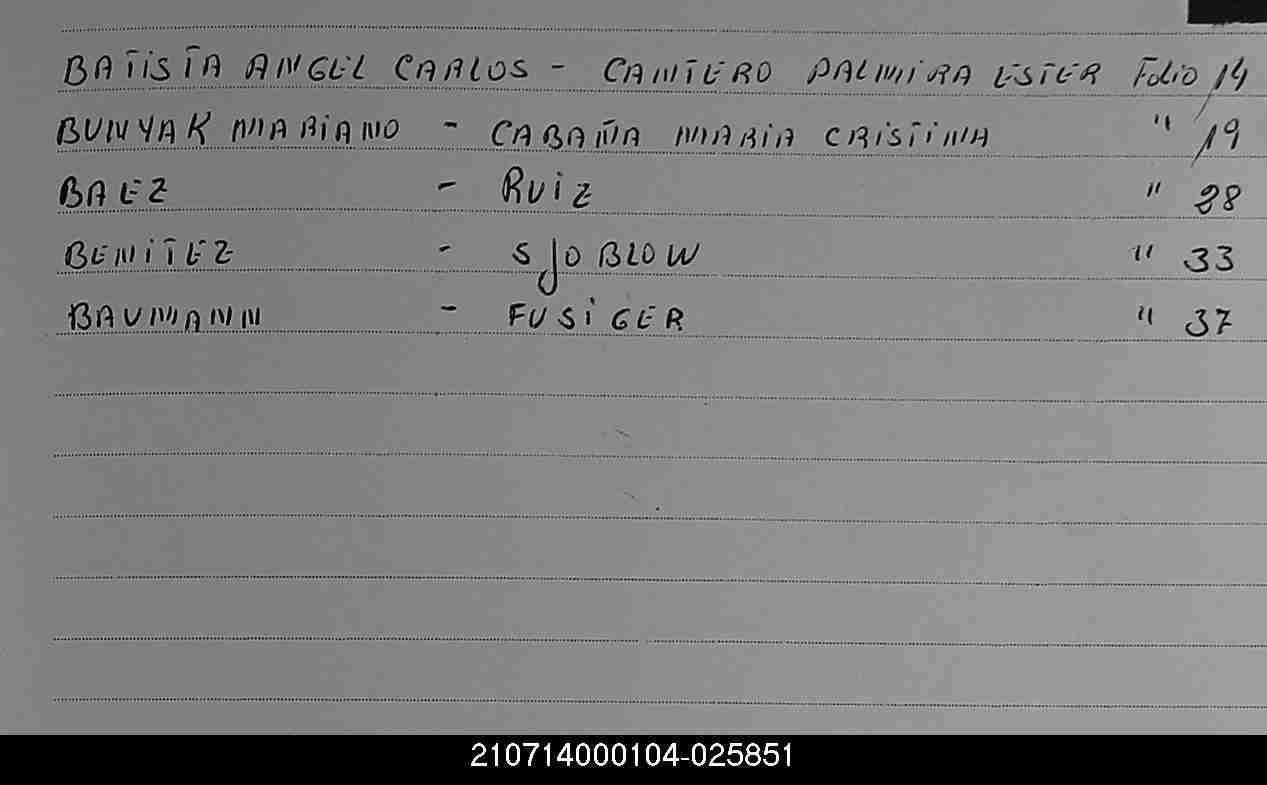 BATISTA ANGEL CARLOS - CANTERO PALMIRA ESTER Folio 14
BUNYAK MARIANO - CABAÑA MARIA CRISTINA " 19
BAEZ - RUIZ " 28
BENITEZ - SJOBLOW " 33
BAUMANN - FUSIGER " 37
210714000104-025851